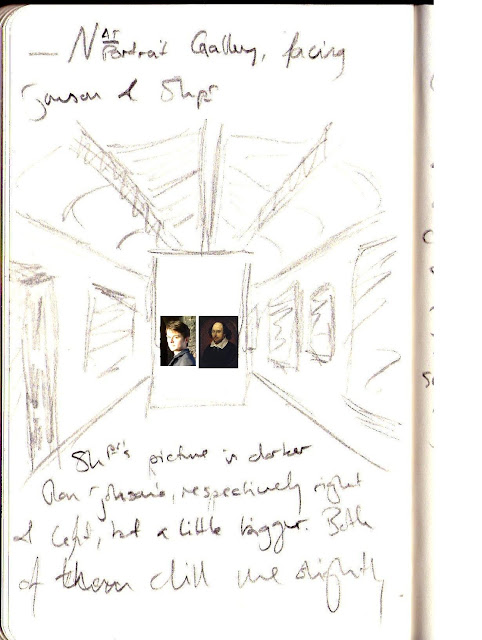 — Nat Portrait Gallery, facing
Jonson & Shpr
Shpr's picture is darker
than Johson's, respectively right
& left, but a little bigger. Both
of them chill me slightly.